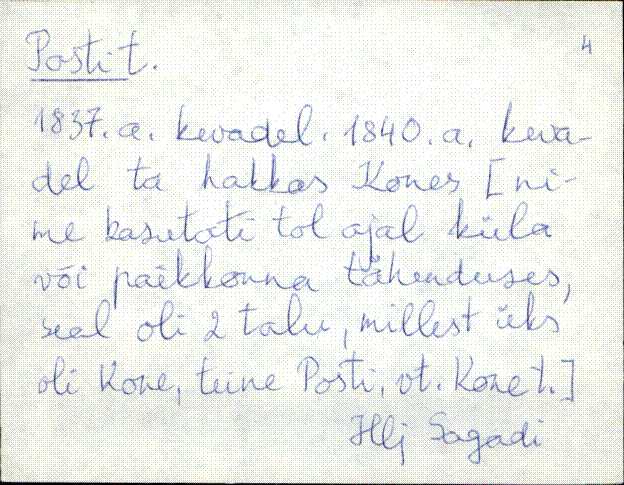 Posti t. 4
1837. a. kevadel. 1840. a. keva-
del ta hakkas Kones [ni-
me kasutati tol ajal küla
või paikkonna tähenduses,
seal oli 2 talu, millest üks
oli Kone, teine Posti, vt. Kone t.]
Hlj Sagadi